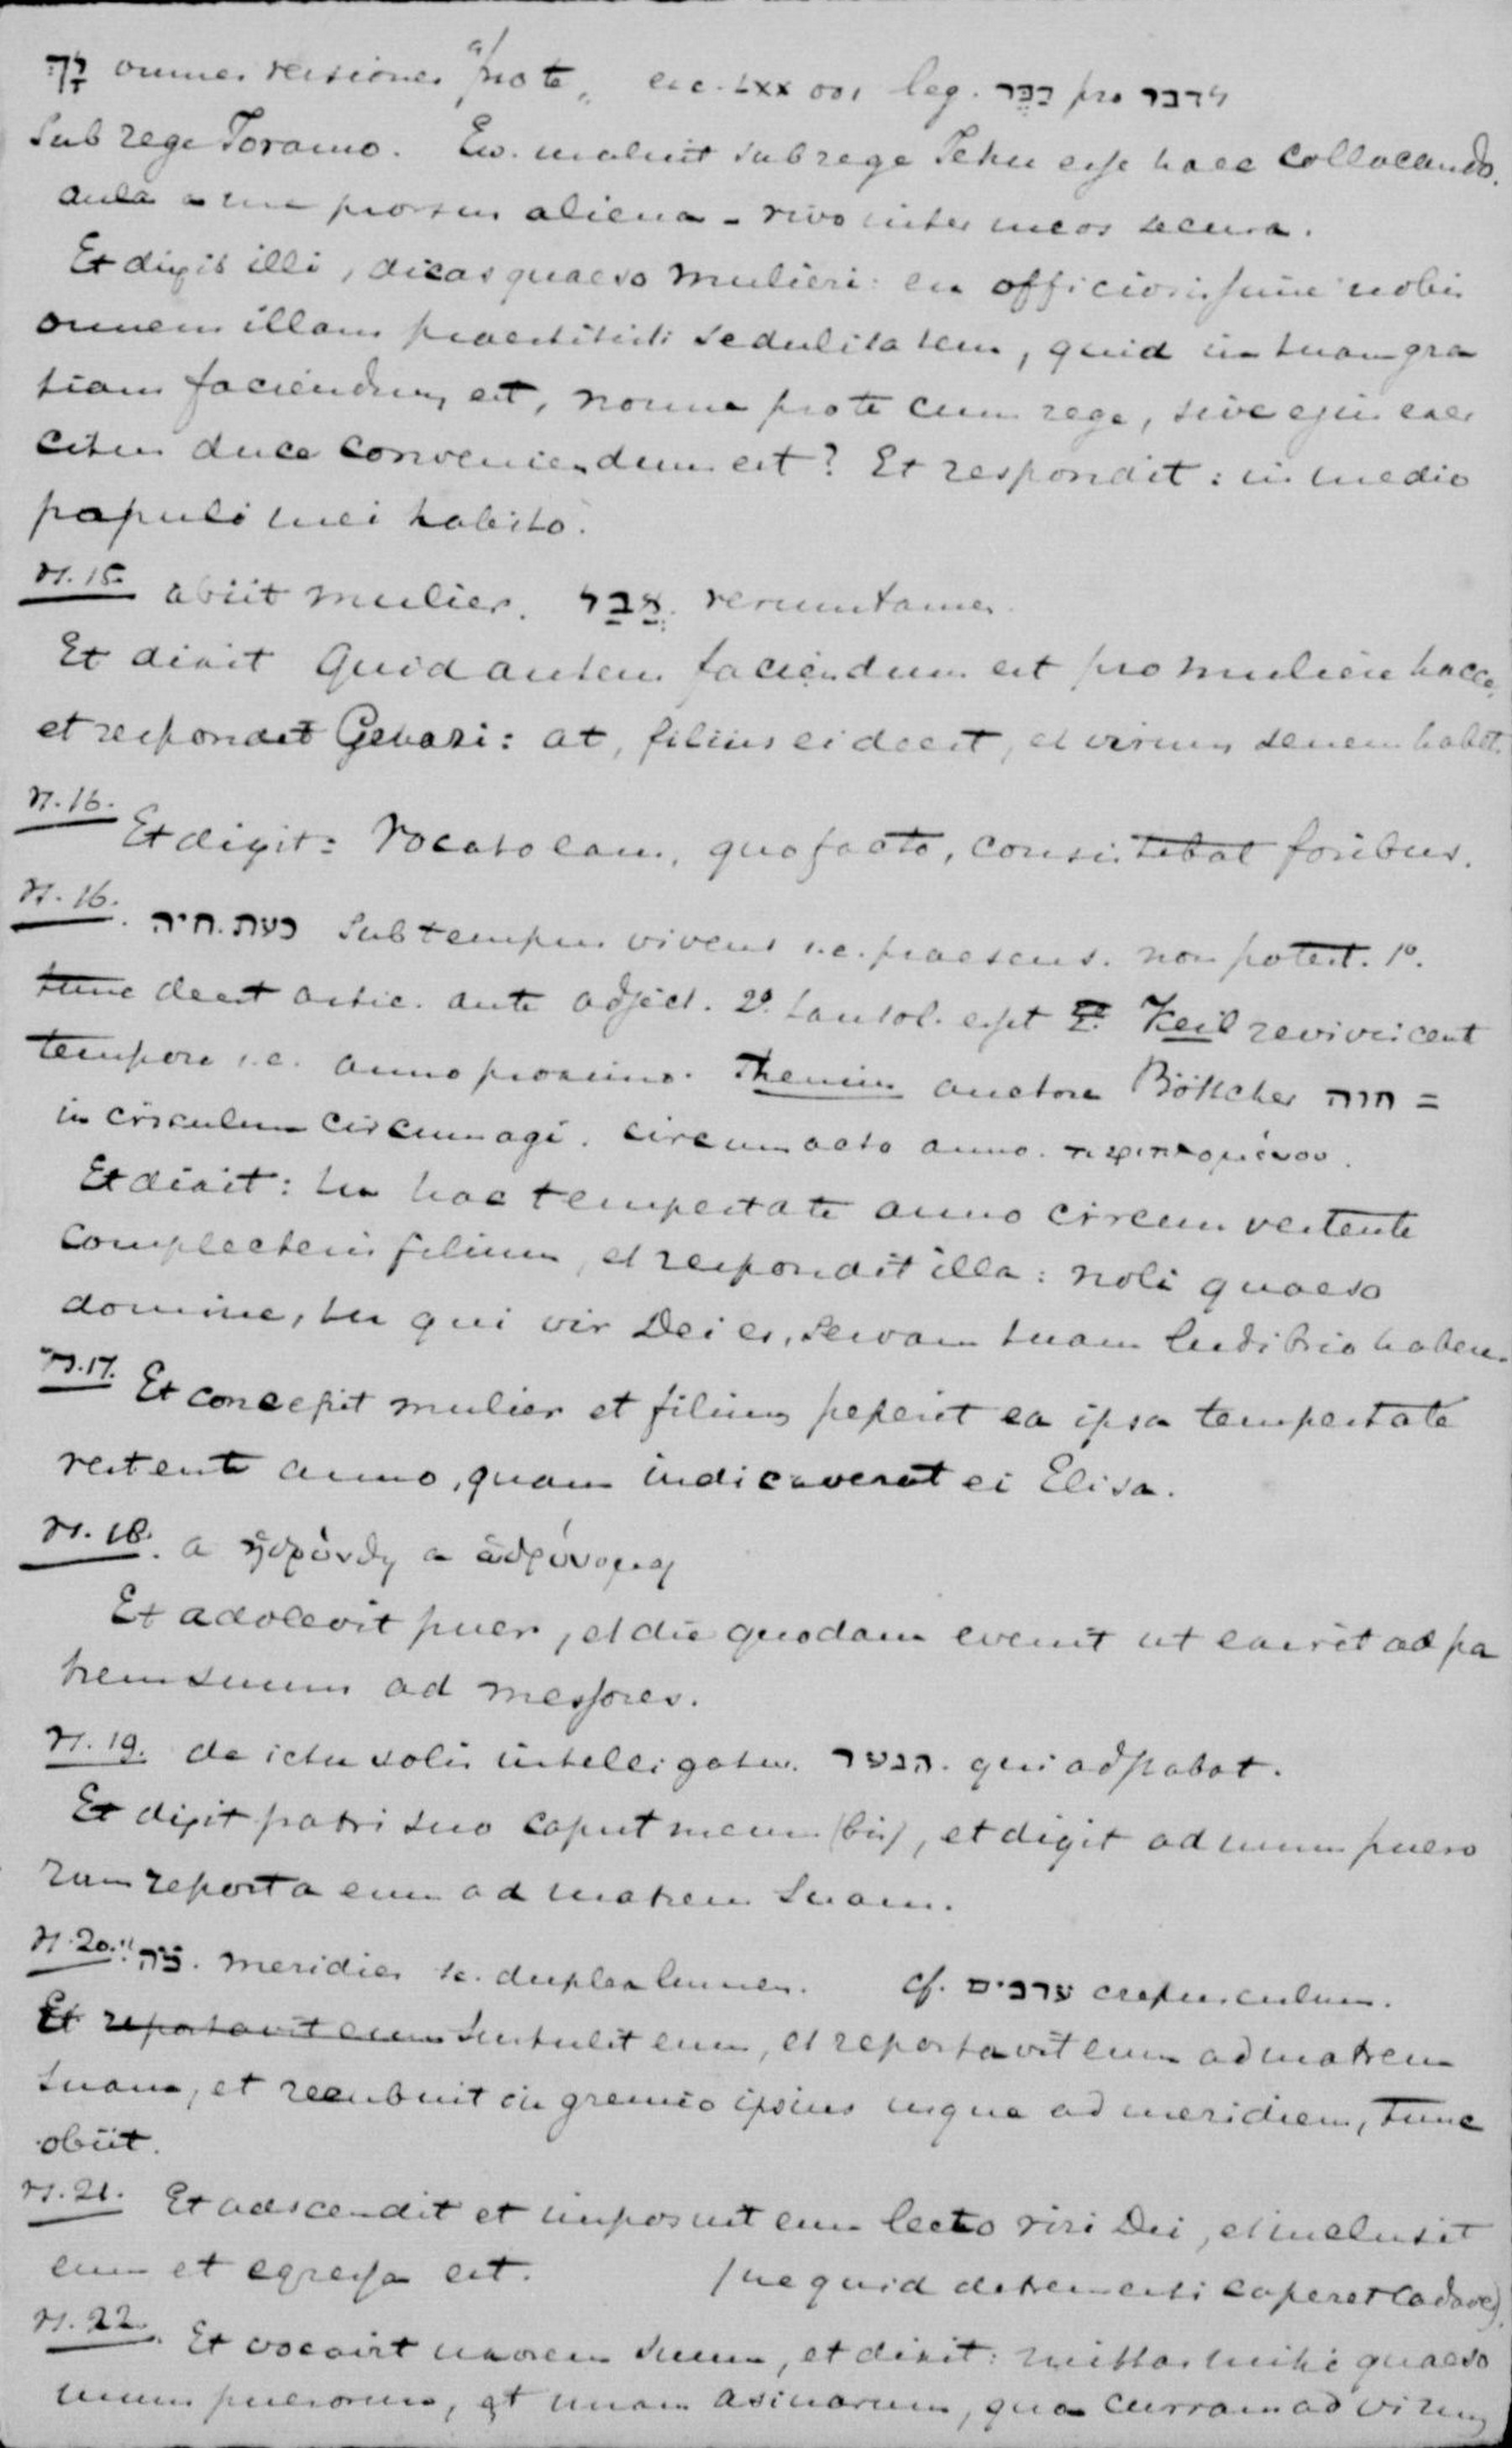 לָךְ omnes versiones a/ pro te, exc. LXX σοι leg. דַבֵּר pro לדבר
sub rege Joramo. Ew. maluit sub rege Jehu esse haec collocanda.
aula a me prorsus aliena - vivo inter meos secura.
Et dixit illi, dicas quaeso mulieri: en officiosissime nobis
omnem illam praestitisti sedulitatem, quid in tuam gra
tiam faciendum est, nonne pro te cum rege, sive ejus exer
citus duce conveniendum est? Et respondit: in medio
populi mei habito.
vs. 15. abiit mulier. אֲבָל. verumtamen.
Et dixit Quid autem faciendum est pro muliere hacce,
et respondet Gehazi: at, filius ei deest, et virum senem habet.
vs. 16. Et dixit: Vocato eam, quo facto, consistebat foribus.
vs. 16. כעת חיה sub tempus vivens i.e. praesens. non potest. 1°.
tunc deest artic. ante adject. 2°. tautol. esset Keil reviviscent
tempore i.e. anno proximo. Thenius auctore Böttcher חוה =
in circulum circumagi. circumacto anno. περιπλομένου.
Et dixit: in hac tempestate anno circumvertente
complecteris filium, et respondit illa: noli quaeso
domine, tu qui vir Dei es, servam tuam ludibrio habere.
vs. 17. Et concepit mulier et filium peperit ea ipsa tempestate
vertente anno, quam indicaverat ei Elisa.
vs. 18. a ἡδρύνθη a ἁδρύνομαι
Et adolevit puer, et die quodam evenit ut exiret ad pa
trem suum ad messores.
vs. 19. de ictu solis intelligatur. הנער. qui adstabat.
Et dixit patri suo caput meum (bis), et dixit ad unum puero
rum reporta eum ad matrem suam.
vs. 20. צה. meridies sc. duplex lumen. cf. ערבים crepusculum.
Et reportavit eum sustulit eum, et reportavit eum ad matrem
suam, et recubuit in gremio ipsius usque ad meridiem, tunc
obiit.
vs. 21. Et adscendit et imposuit eum lecto viri Dei, et inclusit
eum et egressa est. (ne quid detrementi caperet cadaver).
vs. 22. Et vocavit uxorem suum, et dixit: mittas mihi quaeso
unum puerorum, et unam asinarum, qua curram ad virum